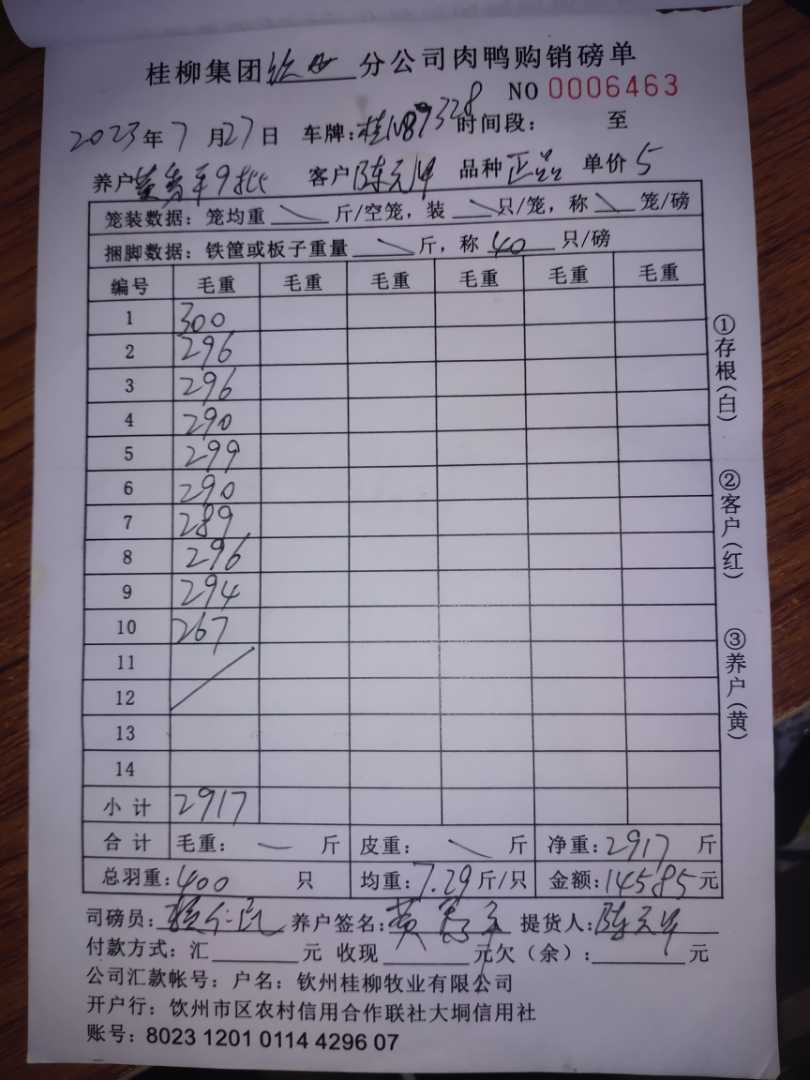 桂柳集团钦州分公司肉鸭购销磅单
NO 0006463
2023年7月27日 车牌:桂N87328 时间段: 至
养户 9批 客户 陈元坤 品种 正品 单价 5
笼装数据:笼均重 斤/空笼,装 只/笼,称 笼/磅
捆脚数据:铁筐或板子重量 斤,称 40 只/磅
编号 毛重 毛重 毛重 毛重 毛重 毛重
1 300
2 296
3 296
4 290
5 299
6 290
7 289
8 296
9 294
10 267
11
12
13
14
小计 2917
合计 毛重: 一 斤 皮重: 斤 净重:2917 斤
总羽重:400 只 均重:7.29 斤/只 金额:14585 元
司磅员: 养户签名:黄 提货人:陈元坤
付款方式:汇 元 收现 元欠(余): 元
公司汇款帐号:户名:钦州桂柳牧业有限公司
开户行:钦州市区农村信用合作联社大垌信用社
账号:8023 1201 0114 4296 07
①存根(白)
②客户(红)
③养户(黄)